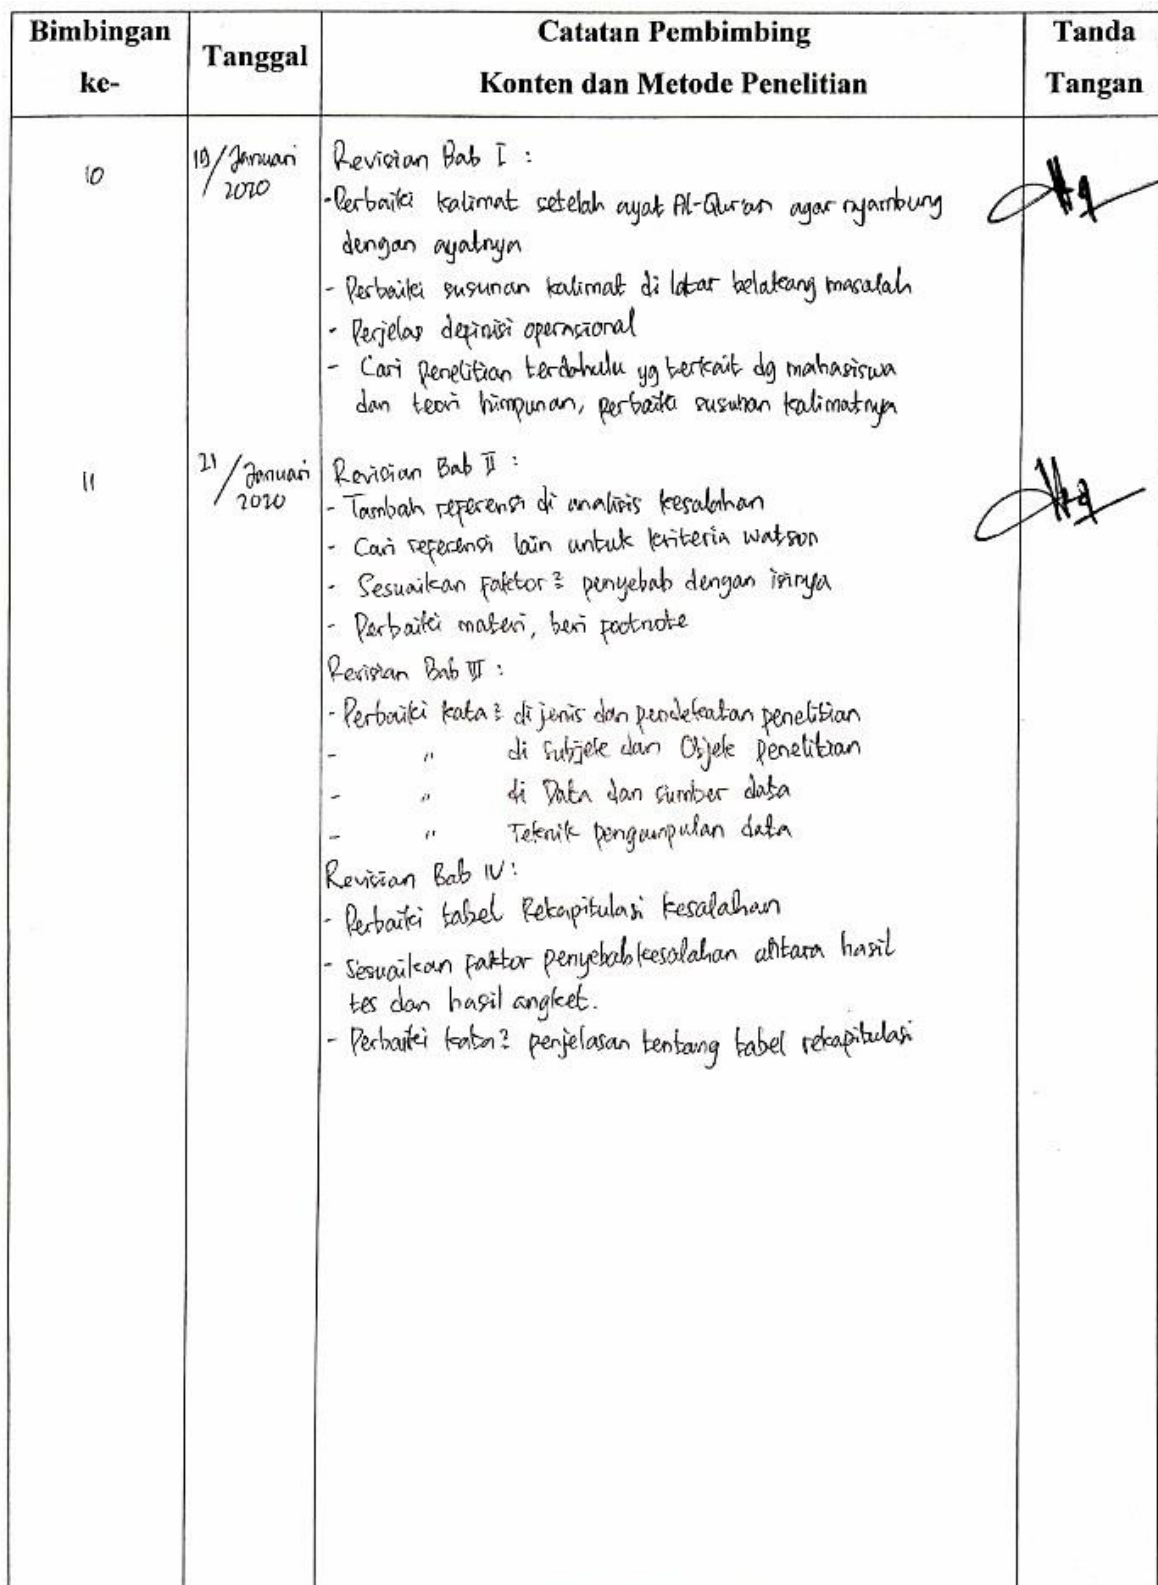 Bimbingan ke-
Tanggal
Catatan Pembimbing
Konten dan Metode Penelitian
Tanda Tangan
10
19/Januari
2020
Revisian Bab I :
-Perbaiki kalimat setelah ayat Al-Qur'an agar nyambung
dengan ayatnya
- Perbaiki susunan kalimat di latar belakang masalah
- Perjelas definisi operasional
- Cari Penelitian terdahulu yg terkait dg mahasiswa
dan teori himpunan, perbaiki susunan kalimatnya
11
21/Januari
2020
Revisian Bab II :
- Tambah referensi di analisis kesalahan
- Cari referensi lain untuk kriteria watson
- Sesuaikan faktor² penyebab dengan isinya
- Perbaiki materi, beri footnote
Revisian Bab III :
- Perbaiki kata² di jenis dan pendekatan penelitian
- " di subjek dan Objek Penelitian
- " di Data dan sumber data
- " Teknik pengumpulan data
Revisian Bab IV :
- Perbaiki tabel Rekapitulasi kesalahan
- Sesuaikan faktor penyebab kesalahan antara hasil
tes dan hasil angket.
- Perbaiki kata² penjelasan tentang tabel rekapitulasi